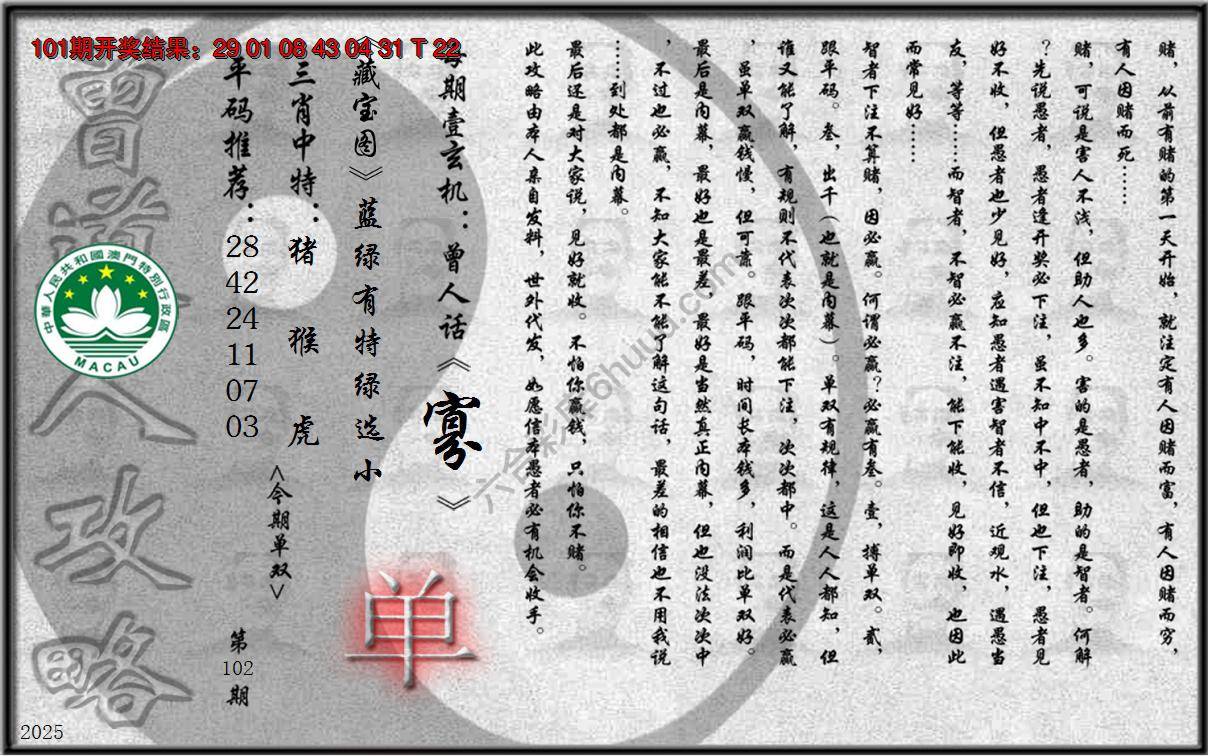 101期开奖结果：29 01 08 43 04 31 T 22
赌，从前有赌的第一天开始，就注定有人因赌而富，有人因赌而穷，
有人因赌而死……
赌，可说是害人不浅，但助人也多。害的是愚者，助的是智者。何解
？先说愚者，愚者逢开奖必下注，虽不知中不中，但也下注，愚者见
好不收，但愚者也少见好，应知愚者遇害智者不信，近观水，遇愚当
友，等等……而智者，不智必赢不注，能下能收，见好即收，也因此
而常见好……
智者下注不算赌，因必赢。何谓必赢？必赢有叁。壹，搏单双。贰，
跟平码。叁，出千（也就是内幕）。单双有规律，这是人人都知，但
谁又能了解，有规则不代表次次都能下注，次次都中。而是代表必赢
，虽单双赢钱慢，但可靠。跟平码，时间长本钱多，利润比单双好。
最后是内幕，最好也是最差，最好是当然真正内幕，但也没法次次中
，不过也必赢，不知大家能不能了解这句话，最差的相信也不用我说
……到处都是内幕。
最后还是对大家说，见好就收。不怕你赢钱，只怕你不赌。
此攻略由本人亲自发料，世外代发，如愿信本愚者必有机会收手。
每期壹玄机：曾人话《寡》
《藏宝图》蓝绿有特绿选小
三肖中特：猪 猴 虎
平码推荐：28 42 24 11 07 03
<今期单双>
单
第102期
曾道人攻略
中華人民共和國澳門特別行政區
MACAU
六合彩库6huuu.com
2025